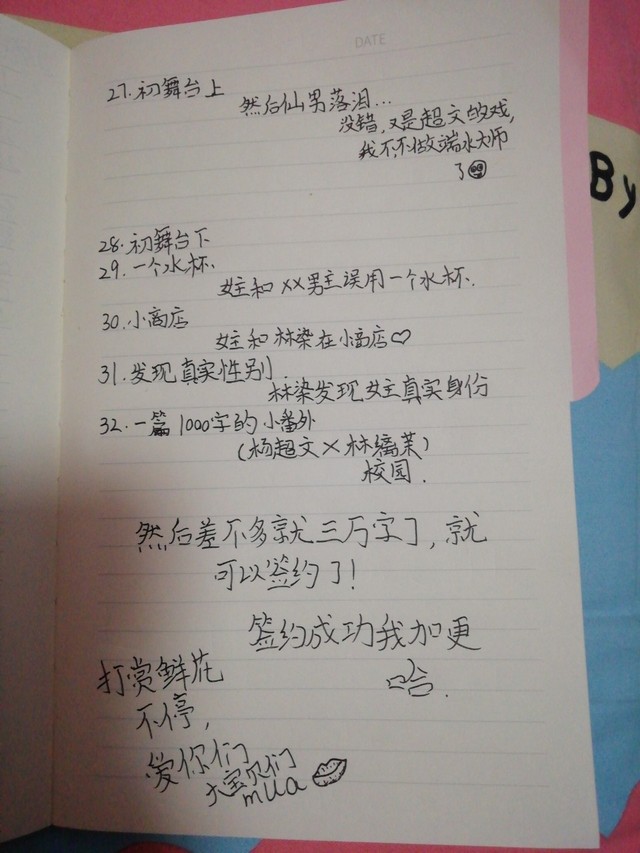 DATE
27.初舞台上
然后仙男落泪...
没错,又是超文的戏,
我不,不做端水大师
了
By
28.初舞台下
29.一个水杯.
女主和XX男主误用一个水杯.
30.小商店
女主和林染在小商店♡
31.发现真实性别.
林染发现女主真实身份
32.一篇1000字的小番外
(杨超文×林缡茉)
校园.
然后差不多就三万字了,就
可以签约了!
签约成功我加更
哈.
打赏鲜花
不停,
爱你们
大宝贝们
mua